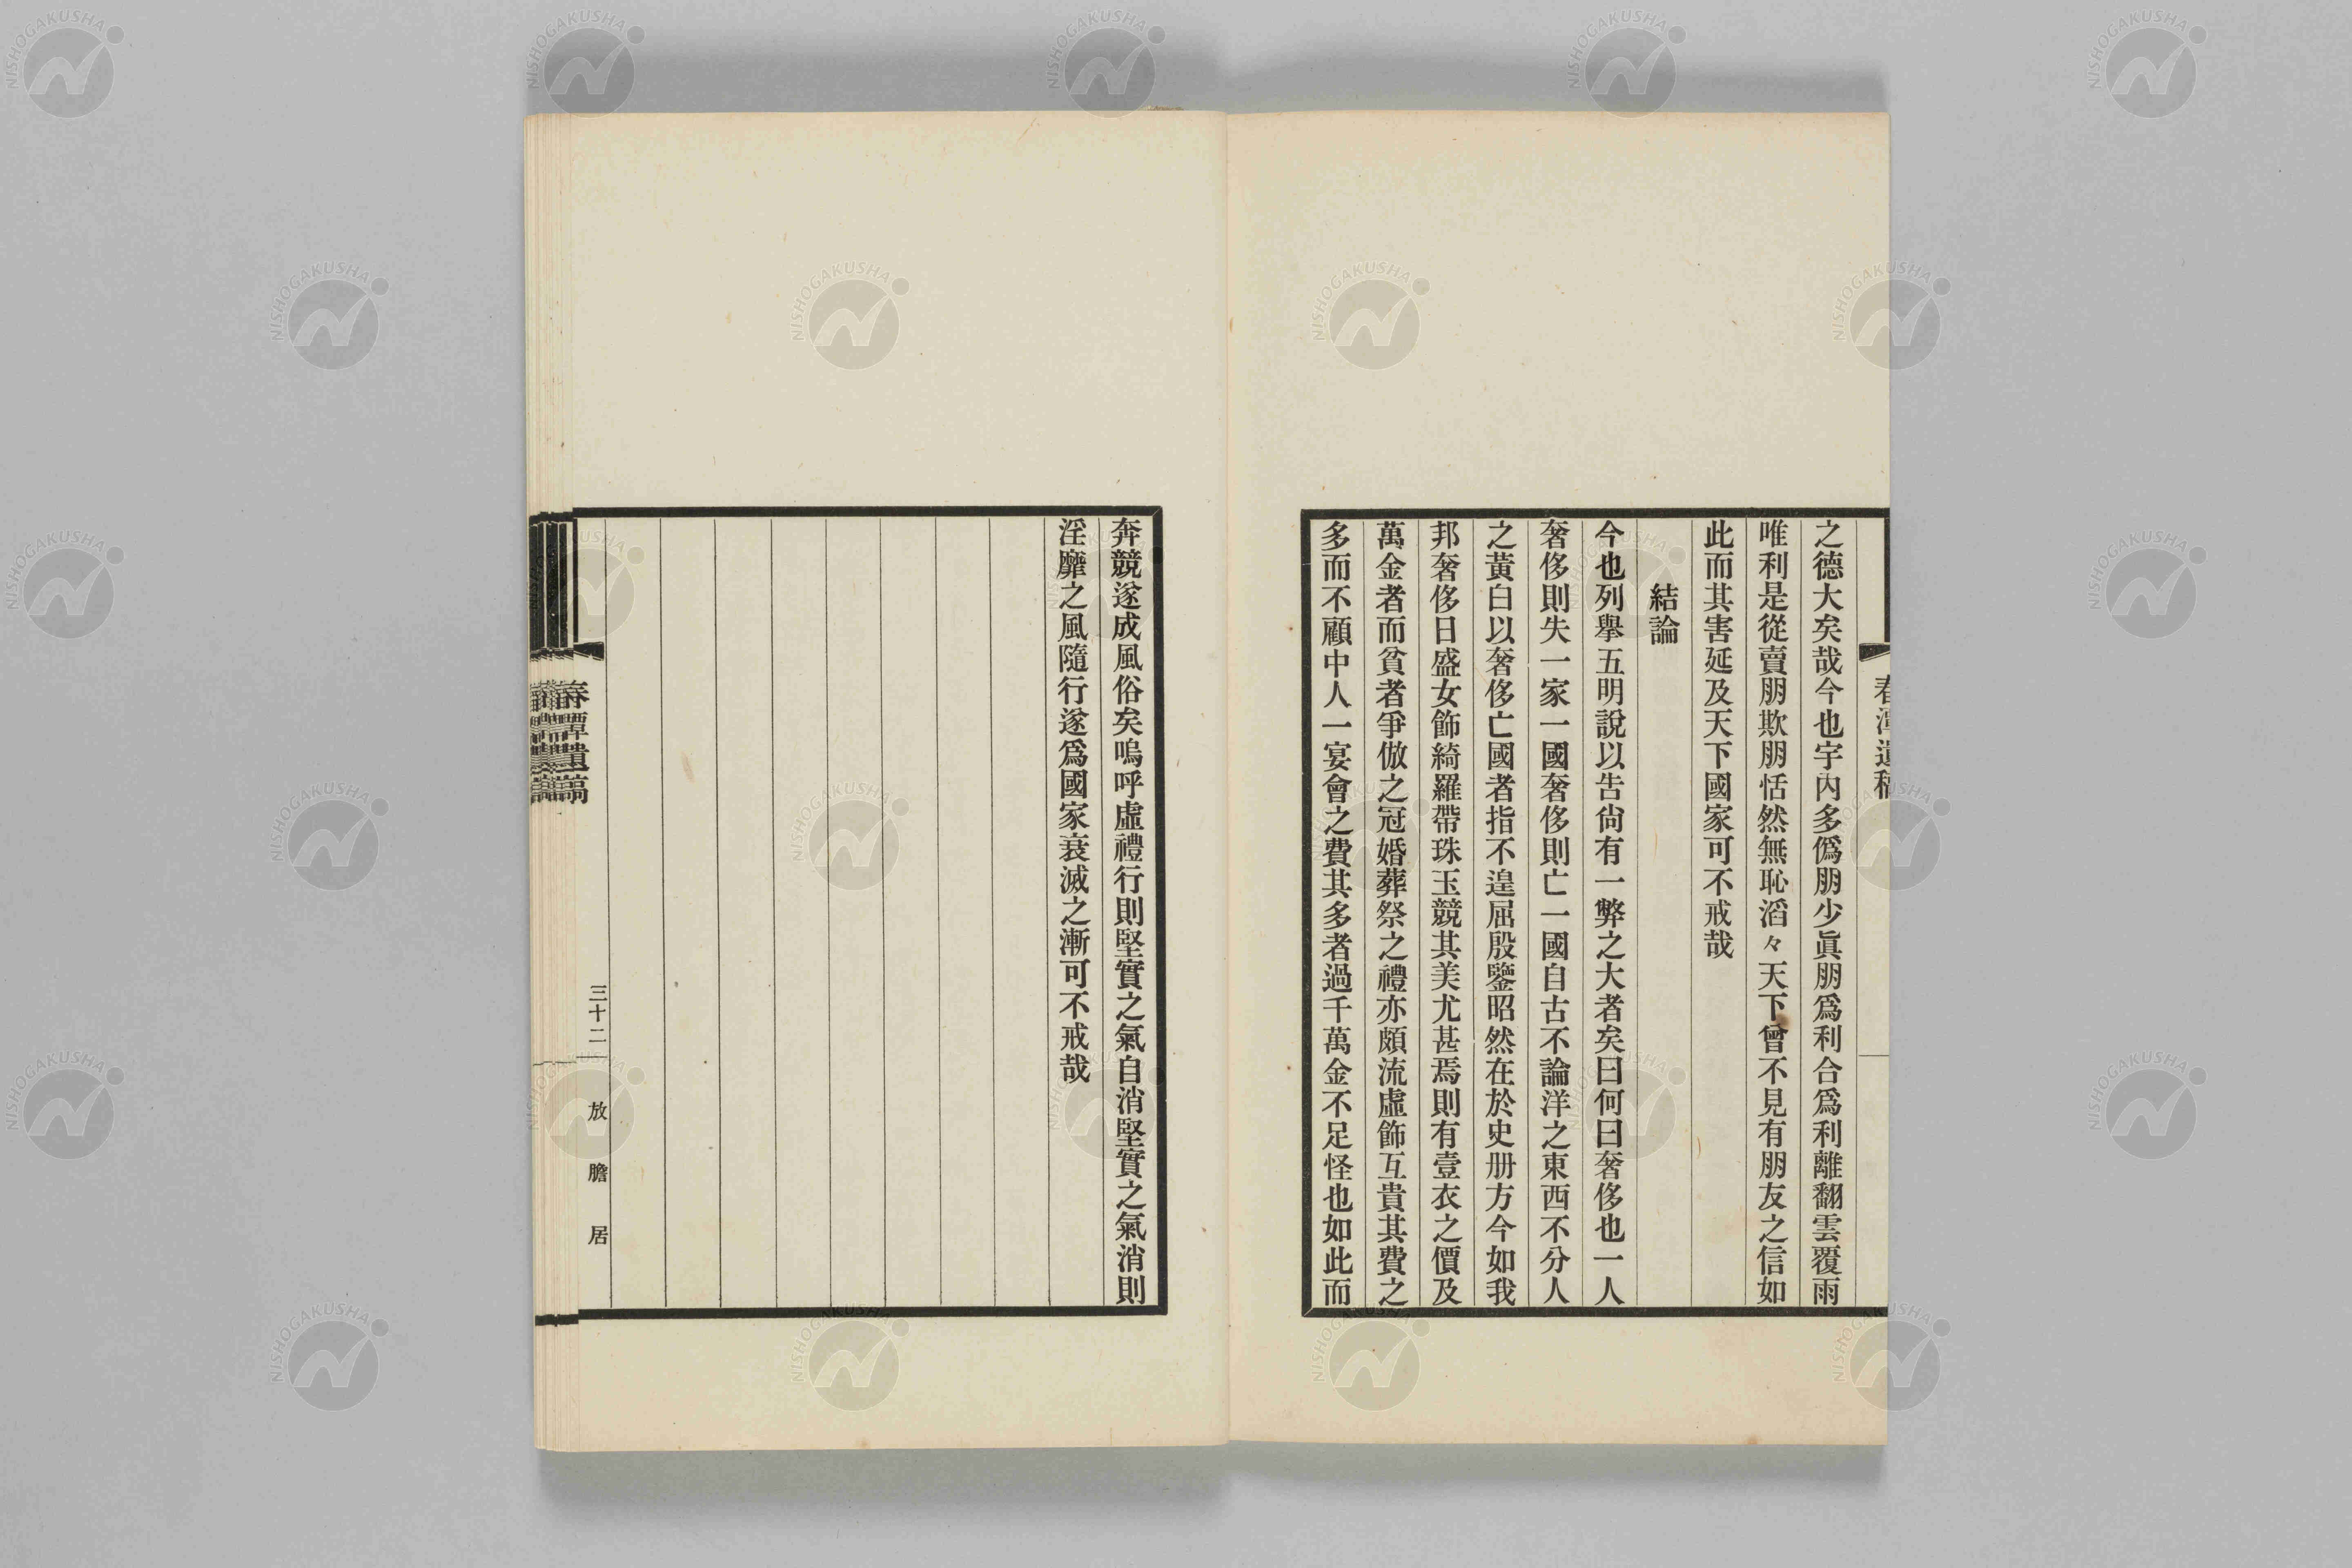 春潭遺稿
之德大矣哉今也宇內多僞朋少眞朋爲利合爲利離翻雲覆雨
唯利是從賣朋欺朋恬然無恥滔々天下曾不見有朋友之信如
此而其害延及天下國家可不戒哉
結論
今也列擧五明說以告尙有一弊之大者矣曰何曰奢侈也一人
奢侈則失一家一國奢侈則亡一國自古不論洋之東西不分人
之黃白以奢侈亡國者指不遑屈殷鑒昭然在於史册方今如我
邦奢侈日盛女飾綺羅帶珠玉競其美尤甚焉則有壹衣之價及
萬金者而貧者爭倣之冠婚葬祭之禮亦頗流虛飾互貴其費之
多而不顧中人一宴會之費其多者過千萬金不足怪也如此而
奔競遂成風俗矣嗚呼虛禮行則堅實之氣自消堅實之氣消則
淫靡之風隨行遂爲國家衰滅之漸可不戒哉
春潭遺稿
三十二
放膽居
NISHOGAKUSHA